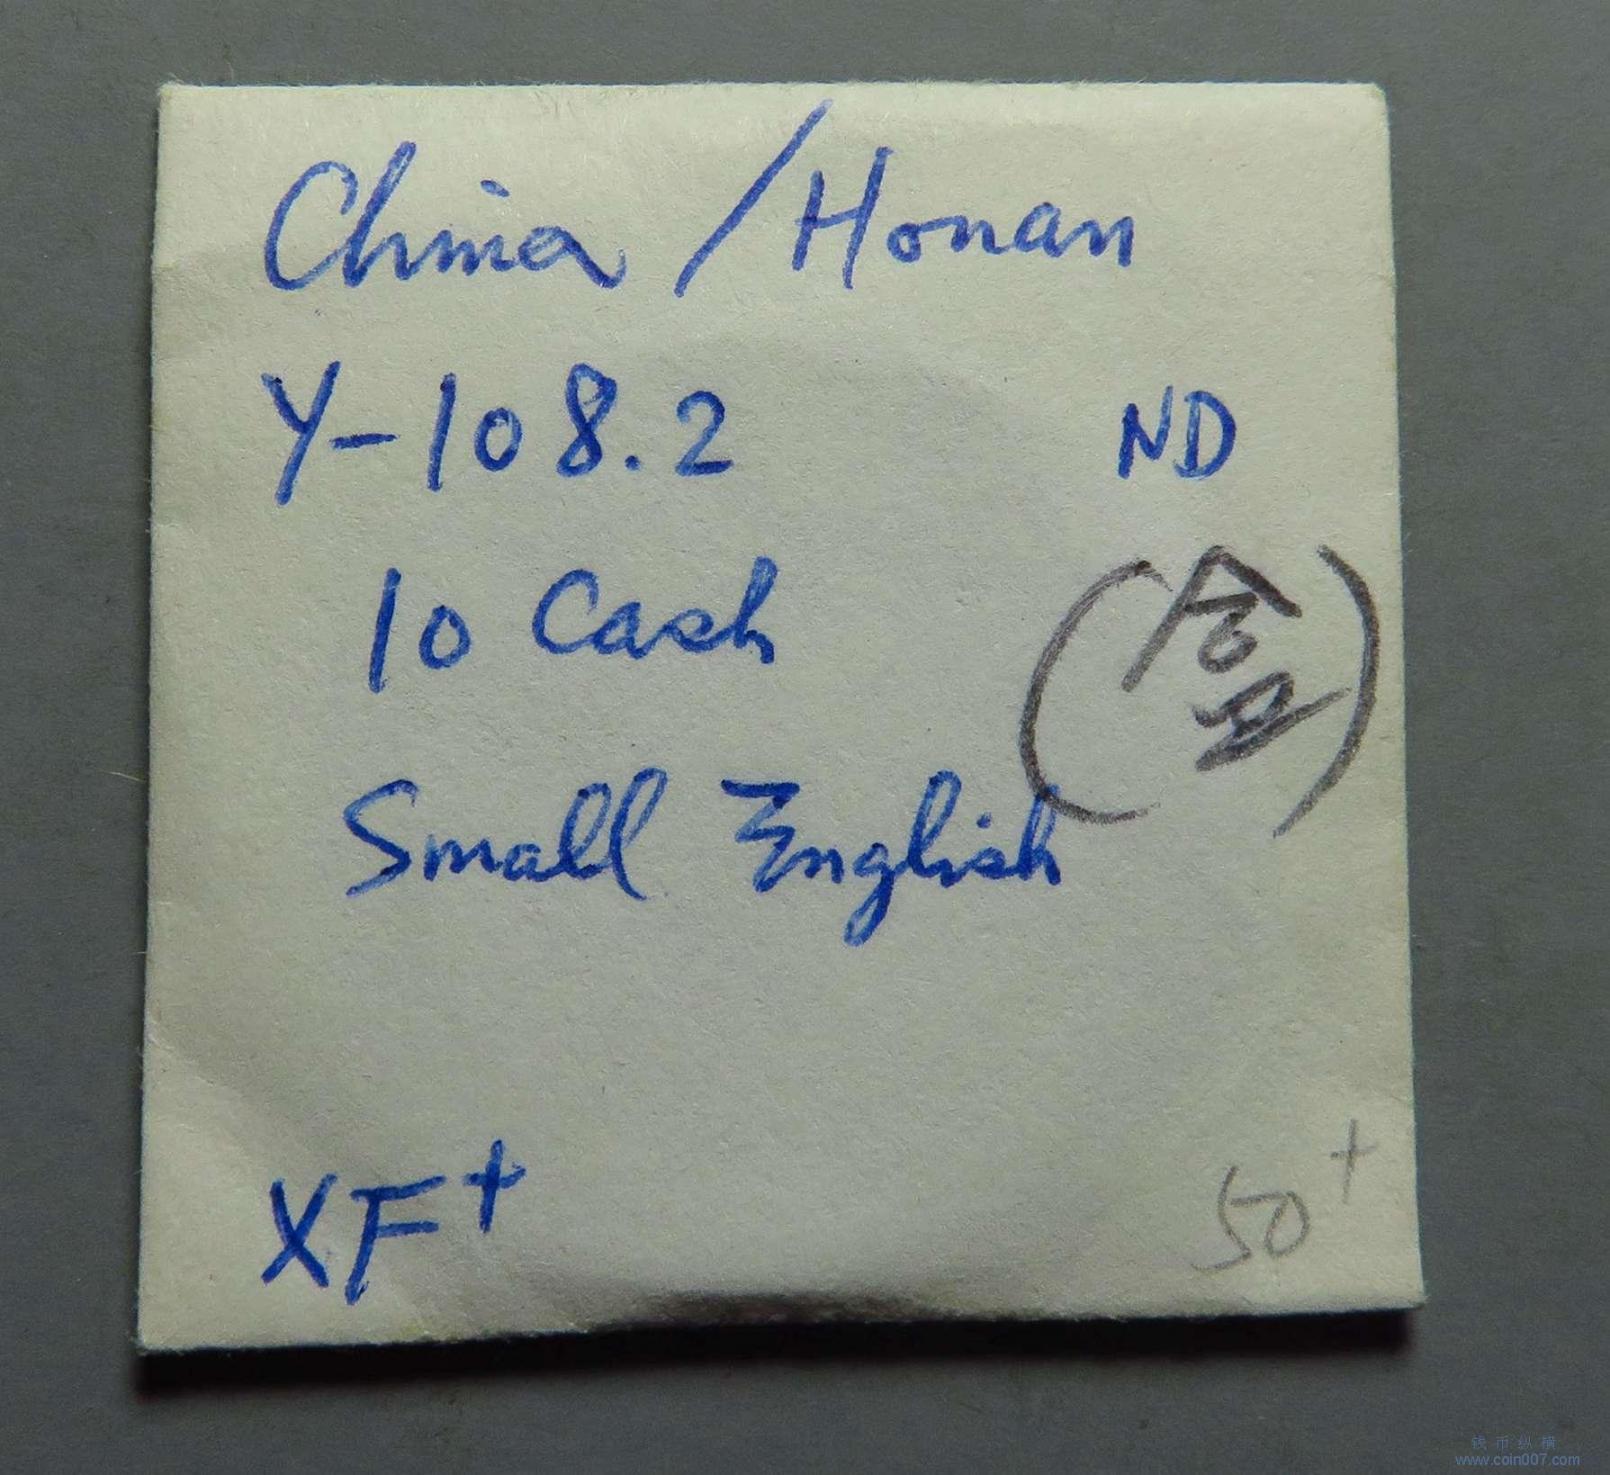 China / Honan
Y-108.2 ND
10 Cash
(盒)
Small English
XF+ 50+
钱币纵横
www.coin007.com